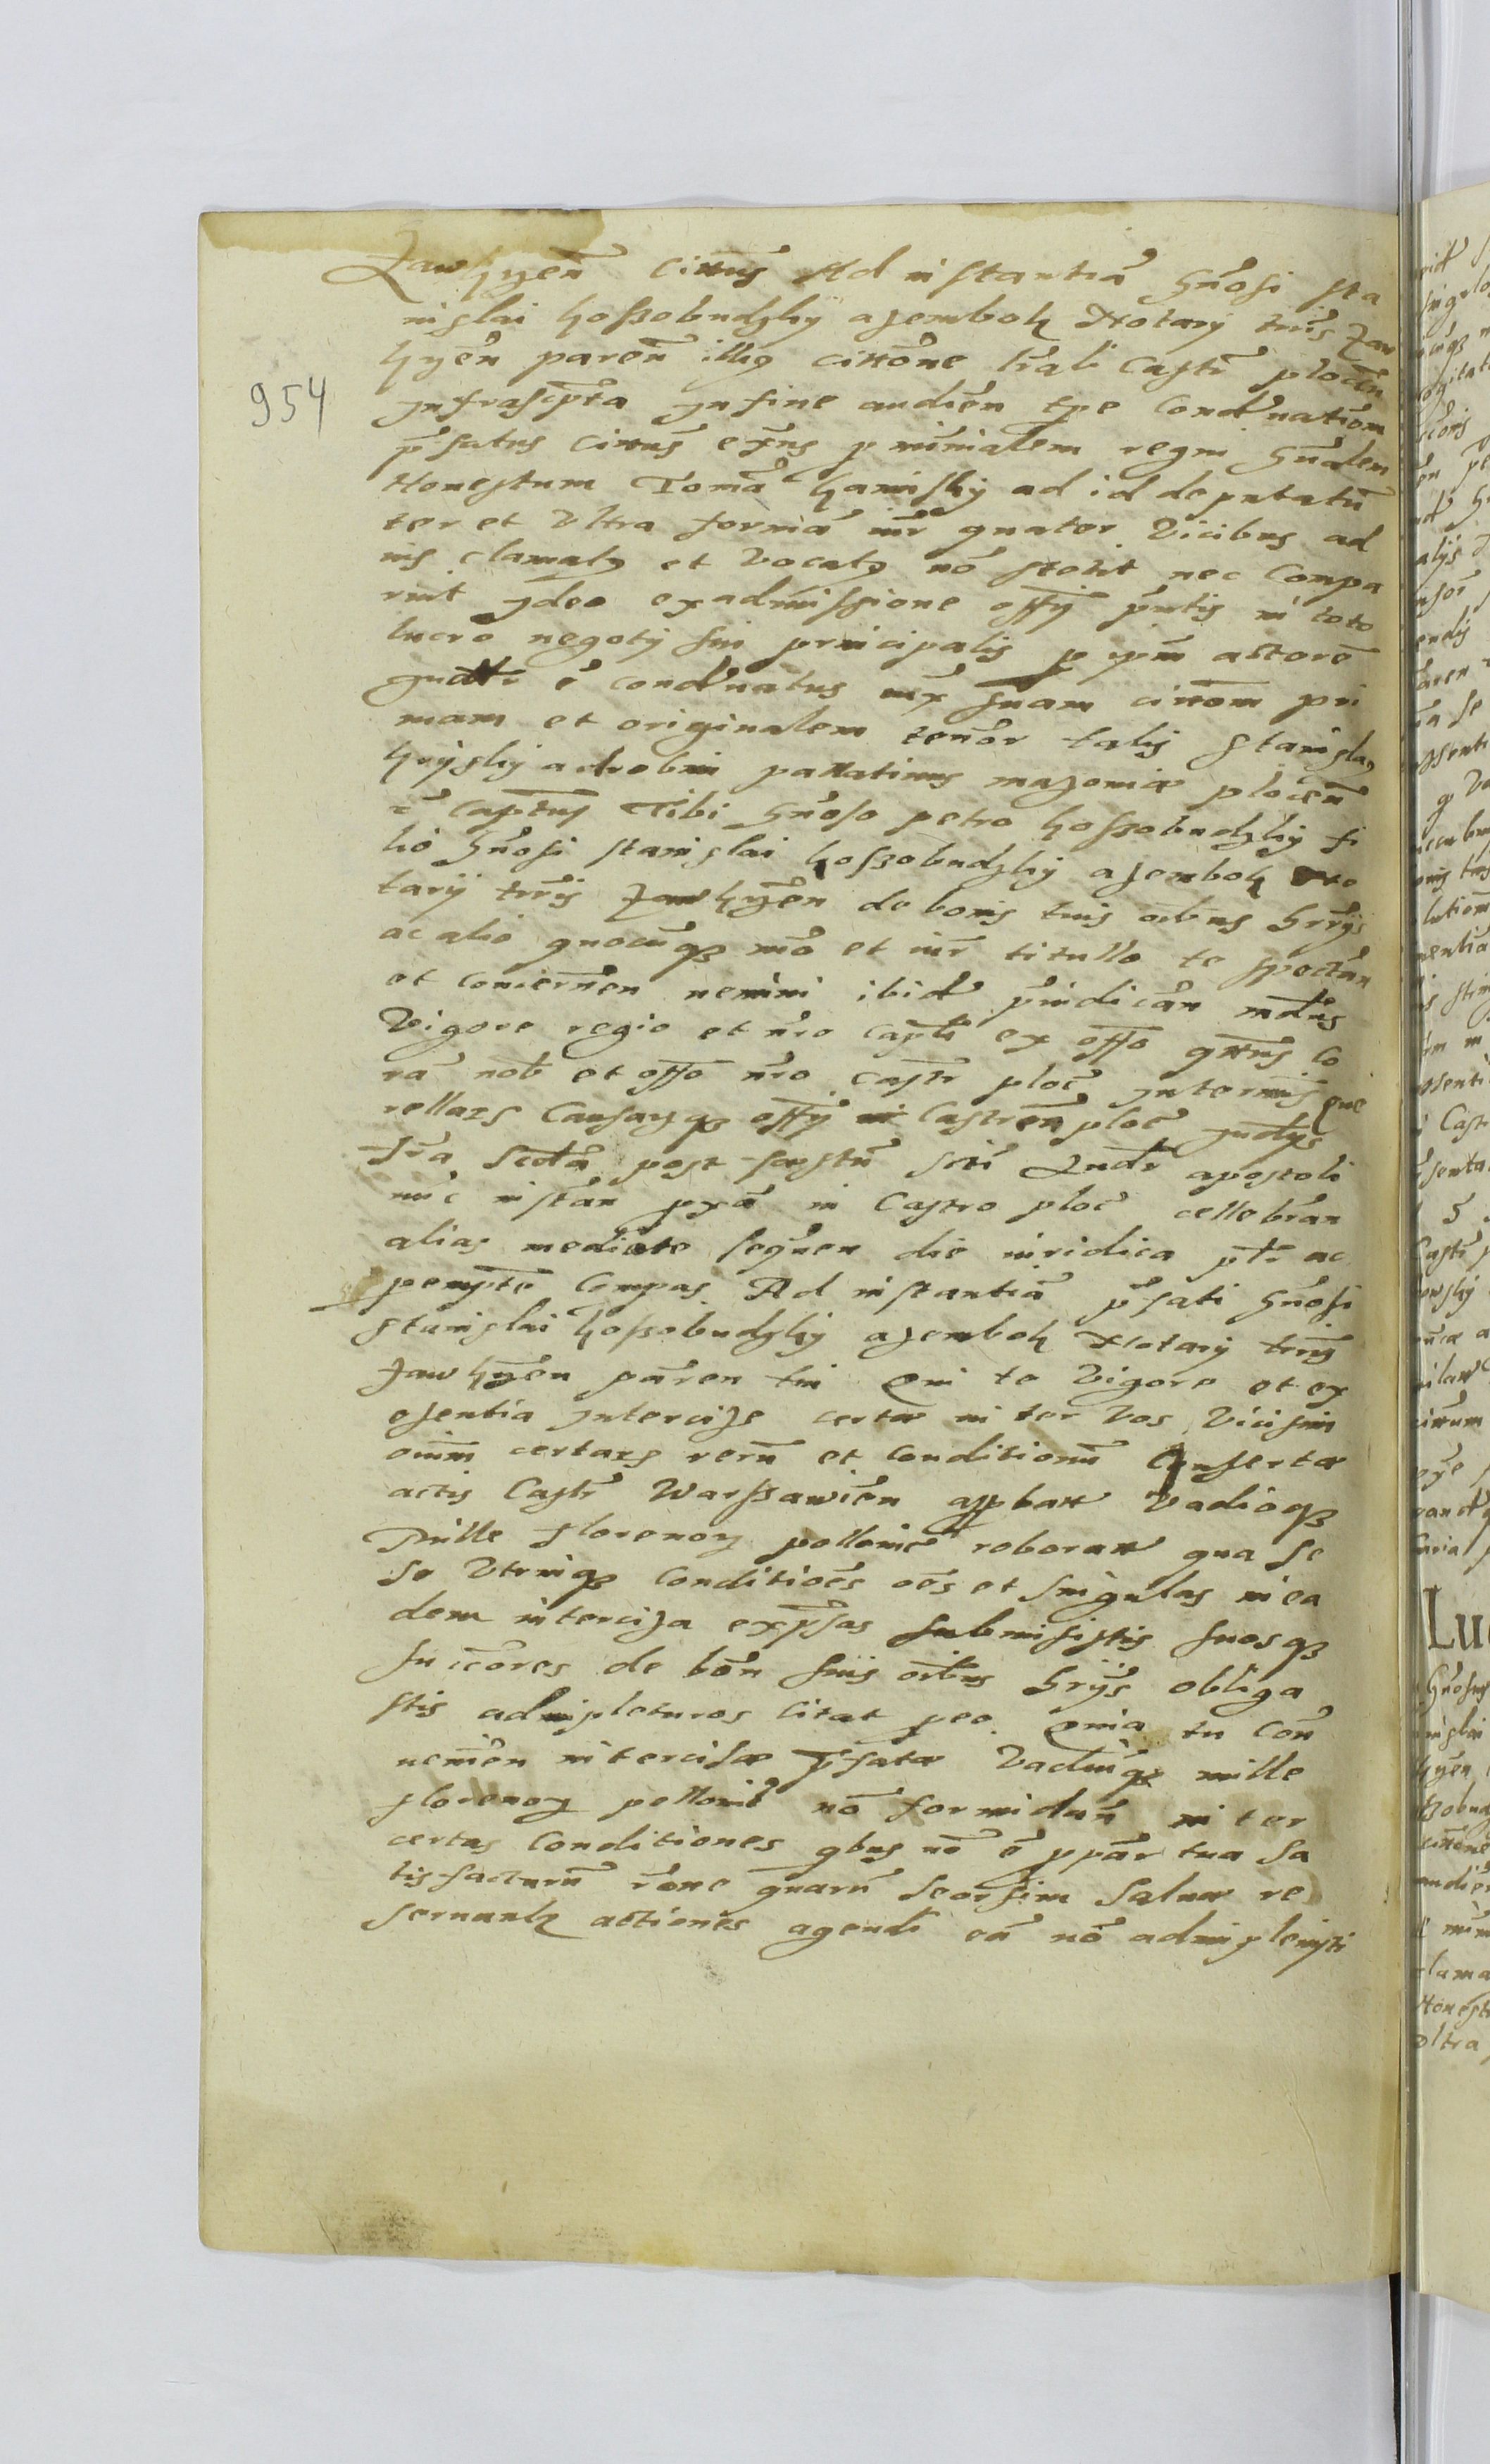 Zawkrzen̄ citatus Ad instantiā Gn̄osi Sta
nislai Kossobudzky a Zembok Notarij trr̄is Zaw
954
krzen̄ paren̄ illius citt̄one lr̄ali Castr̄ plocen̄
Infrascr̄pta In fine audien̄ tp̄e Cond̄natiōm
p̄fatus citt̄us et̄ns p mīnialem regni Gn̄alem
Honestum Tomā Kaminsky ad id deputatū
ter et Ultra formā iur̄ quater Vicibus ad
ius clamatus et Vocatus nō stetit nec Compa
ruit Ideo ex admissione offij p̄ntis in toto
lucro negotij sui principalis p ip̄m actorē
ē cond̄natus iux̄ suam citt̄om pri
mam et originalem tenor talis Stanislaus
Kryski a drobni pallatinus mazoviæ plocen̄
Captn̄s Tibi Gn̄oso petro Kossobudzky fi
lio Gn̄osi Stanislai Kossobudzky a Zembok No
tarij trr̄is Zawkrzen̄ de bonis tuis oībus Gn̄r̄ijs
ac alio quocūq mō et iur̄ titullo te spectan̄
et concernen̄ nemini ibid̄ p̄iudican̄ mād̄mus
Vigore regio et nr̄o capt̄li ex offō q̄tt̄nus Co
rā nob̄ et offō nr̄o castr̄ ploc̄ In terminis que
rellarz Causarzq offij Castren̄ ploc̄ Iud̄ijs
fr̄a Scd̄a post fæstū Sct̄i Andr̄ apostoli
nūc instan̄ px̄ā in Castro ploc̄ cellebran̄
alias mediate sequen̄ die iuridica pt̄r ac
pempt̄e Compas Ad instantiā p̄fati Gn̄osi
Stanislai Kossobudzky a Zembok Notarij trr̄is
Zawkrzen̄ paren̄ tui Qui te Vigore et ex
esentia Intercize certæ inter Vos Vicisim
oīum certarz rerū et Conditionū Conserta
actis Castr̄ Warssawien̄ appbatæ Vadioq
Mille florenorz pollonic̄ roboratæ qua se
se Utrinq Conditiōes oēs et singulas in ea
dem interciza exp̄ssas submisistis suosq
succ̄ores de bōn suis oībus Gn̄r̄ijs obliga
stis adimpleturos Citat peo Quia tu Con̄
uenien̄ intercisæ p̄fatæ Vadiūq mille
florenorz pollonic̄ nō formidan̄ inter
certas Conditiones qbus nō ē p par̄ tua sa
tisfacturū rōne quarū seorsim saluæ re
seruantur actiones agendi eā nō adimpleuisti